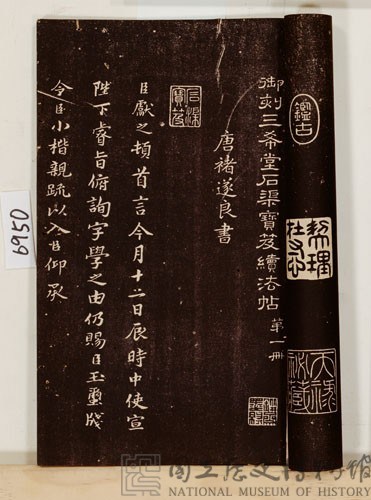 御刻三希堂石渠寶笈續法帖 第一冊
唐褚遂良書
石渠寶笈
臣獻之頓首言今月十二日辰時中使宣
陛下睿旨俯詢字學之由仍賜臣玉璽牋
令臣小楷親疏以入臣仰承
鑑古
天祿
6950
國立歷史博物館
NATIONAL MUSEUM OF HISTORY